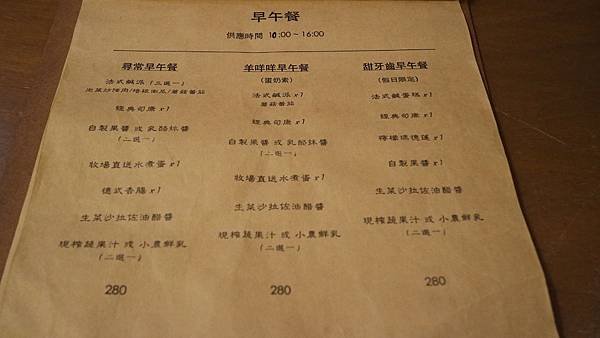 早午餐
供應時間 10:00~16:00
尋常早午餐
法式鹹派(三選一)
泡菜炒豬肉/培根南瓜/蘑菇番茄
經典司康 x1
自製果醬 或 乳酪抹醬
(二選一)
牧場直送水煮蛋 x1
德式香腸 x1
生菜沙拉佐油醋醬
現榨蔬果汁 或 小農鮮乳
(二選一)
280
羊咩咩早午餐
(蛋奶素)
法式鹹派 x1
蘑菇番茄
經典司康 x1
自製果醬 或 乳酪抹醬
(二選一)
牧場直送水煮蛋 x1
生菜沙拉佐油醋醬
現榨蔬果汁 或 小農鮮乳
(二選一)
280
甜牙齒早午餐
(假日限定)
法式鹹蛋糕 x1
經典司康 x1
檸檬瑪德蓮 x1
自製果醬 x1
生菜沙拉佐油醋醬
現榨蔬果汁 或 小農鮮乳
(二選一)
280